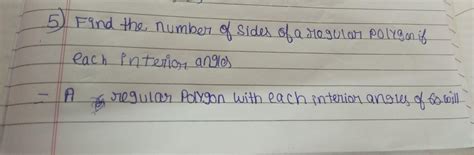 5) Find the number of sides of a regular polygon if
each interior angles
= A regular Polygon with each interior angles of 60 will